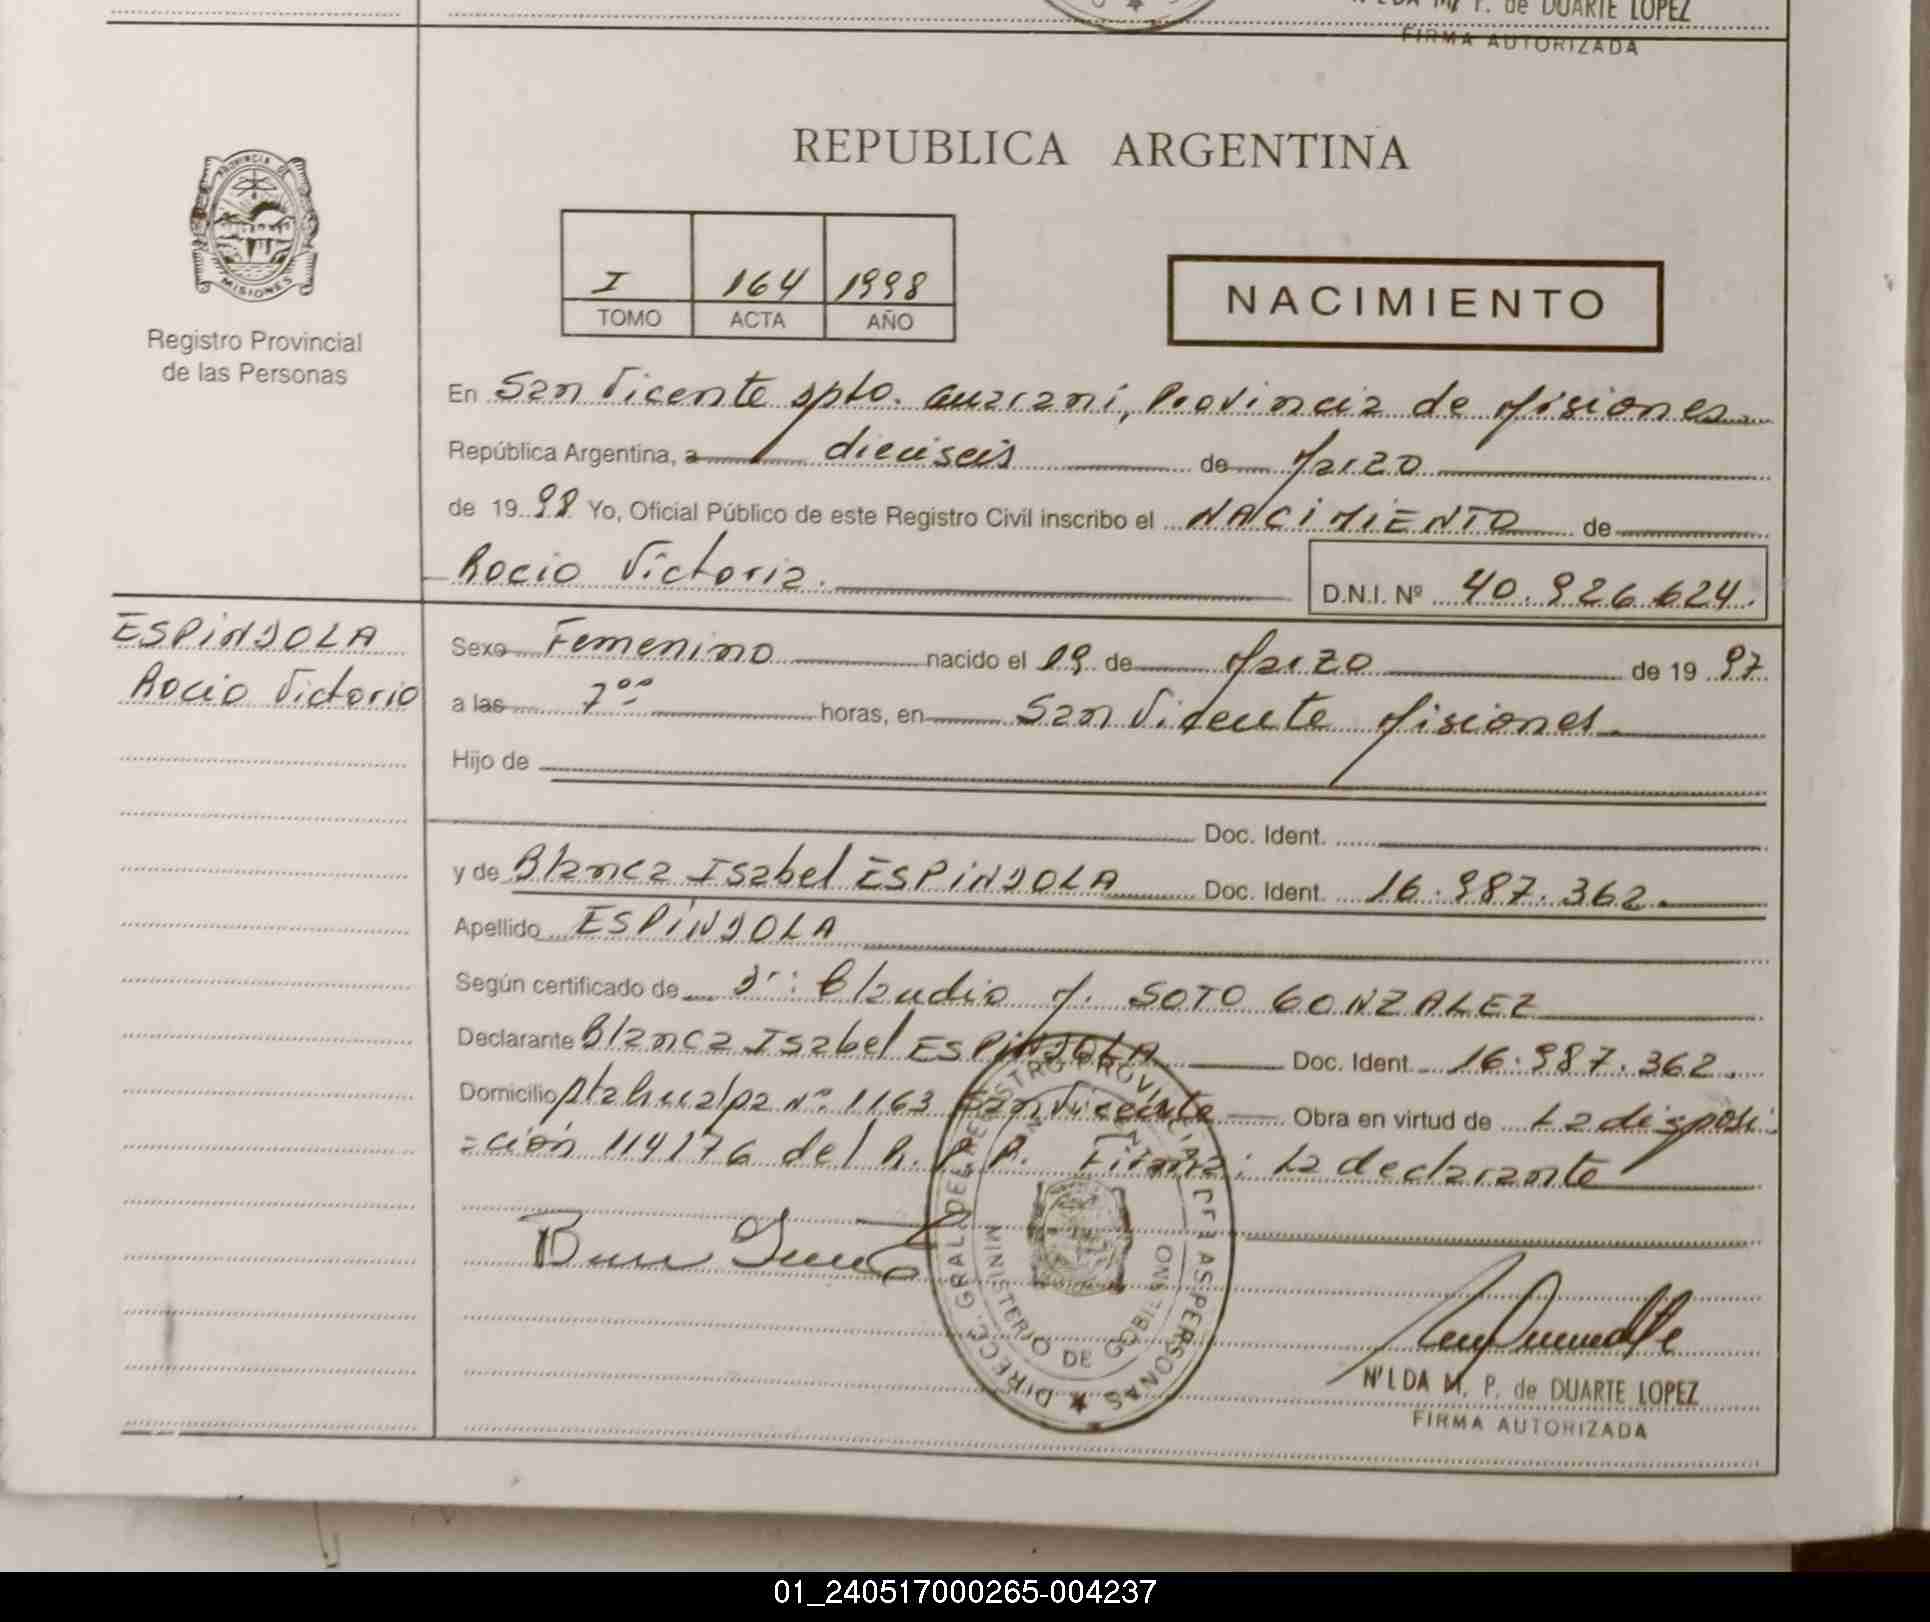 N'LDA M. P. de DUARTE LOPEZ
FIRMA AUTORIZADA
PROVINCIA DE
MISIONES
Registro Provincial
de las Personas
REPUBLICA ARGENTINA
I 164 1998
TOMO ACTA AÑO
NACIMIENTO
En San Vicente Dpto. Guaraní, Provincia de Misiones
República Argentina, a dieciseis de Marzo
de 19 98 Yo, Oficial Público de este Registro Civil inscribo el NACIMIENTO de
Rocio Victoria.
D.N.I. Nº 40.926.624.
ESPINDOLA
Rocio Victoria
Sexo Femenino nacido el 19 de Marzo de 19 97
a las 7⁰⁰ horas, en San Vicente Misiones
Hijo de
Doc. Ident.
y de Blanca Isabel ESPINDOLA Doc. Ident. 16.987.362.
Apellido ESPINDOLA
Según certificado de Dr: Claudio M. SOTO GONZALEZ
Declarante Blanca Isabel ESPINDOLA Doc. Ident. 16.987.362.
Domicilio Atahualpa Nº 1163 San Vicente Obra en virtud de La disposi
=ción 114176 del R.P.P. Firma: La declarante
DIRECC. GRAL. DEL REGISTRO PROVINCIAL DE LAS PERSONAS
MINISTERIO DE GOBIERNO
N'LDA M. P. de DUARTE LOPEZ
FIRMA AUTORIZADA
01_240517000265-004237